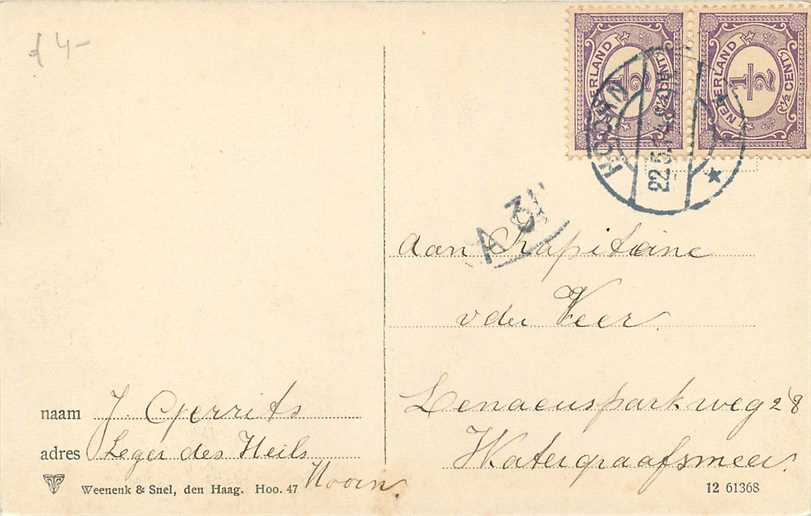 f 4-
NEDERLAND
½
(½ CENT)
NEDERLAND
½
(½ CENT)
HOORN
22.5.
A 3
Aan Kapiteine
v der Veer.
Lenaeusparkweg 28
Watergraafsmeer.
naam J. Gerrits
adres Leger des Heils
Hoorn.
Weenenk & Snel, den Haag. Hoo. 47
12 61368